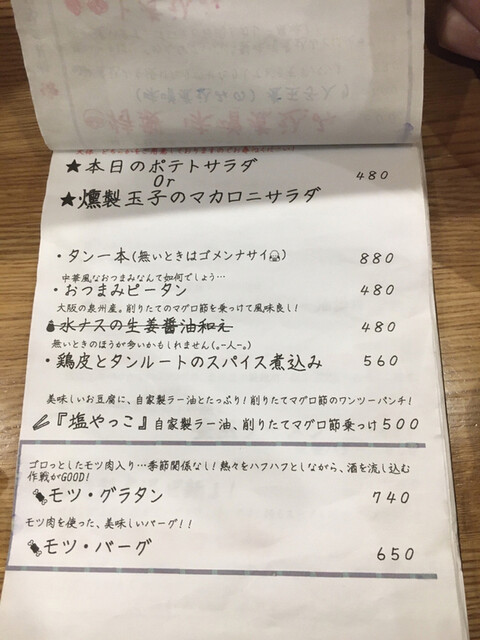 ★本日のポテトサラダ
Or 480
★燻製玉子のマカロニサラダ
・タン一本(無いときはゴメンナサイ) 880
中華風なおつまみなんて如何でしょう…
・おつまみピータン 480
大阪の泉州産。削りたてのマグロ節を乗っけて風味良し!
水ナスの生姜醤油和え 480
無いときのほうが多いかもしれません(｡-人-｡)
・鶏皮とタンルートのスパイス煮込み 560
美味しいお豆腐に、自家製ラー油とたっぷり!削りたてマグロ節のワンツーパンチ!
『塩やっこ』自家製ラー油、削りたてマグロ節乗っけ500
ゴロっとしたモツ肉入り…季節関係なし!熱々をハフハフとしながら、酒を流し込む
作戦がGOOD!
モツ・グラタン 740
モツ肉を使った、美味しいバーグ!!
モツ・バーグ 650